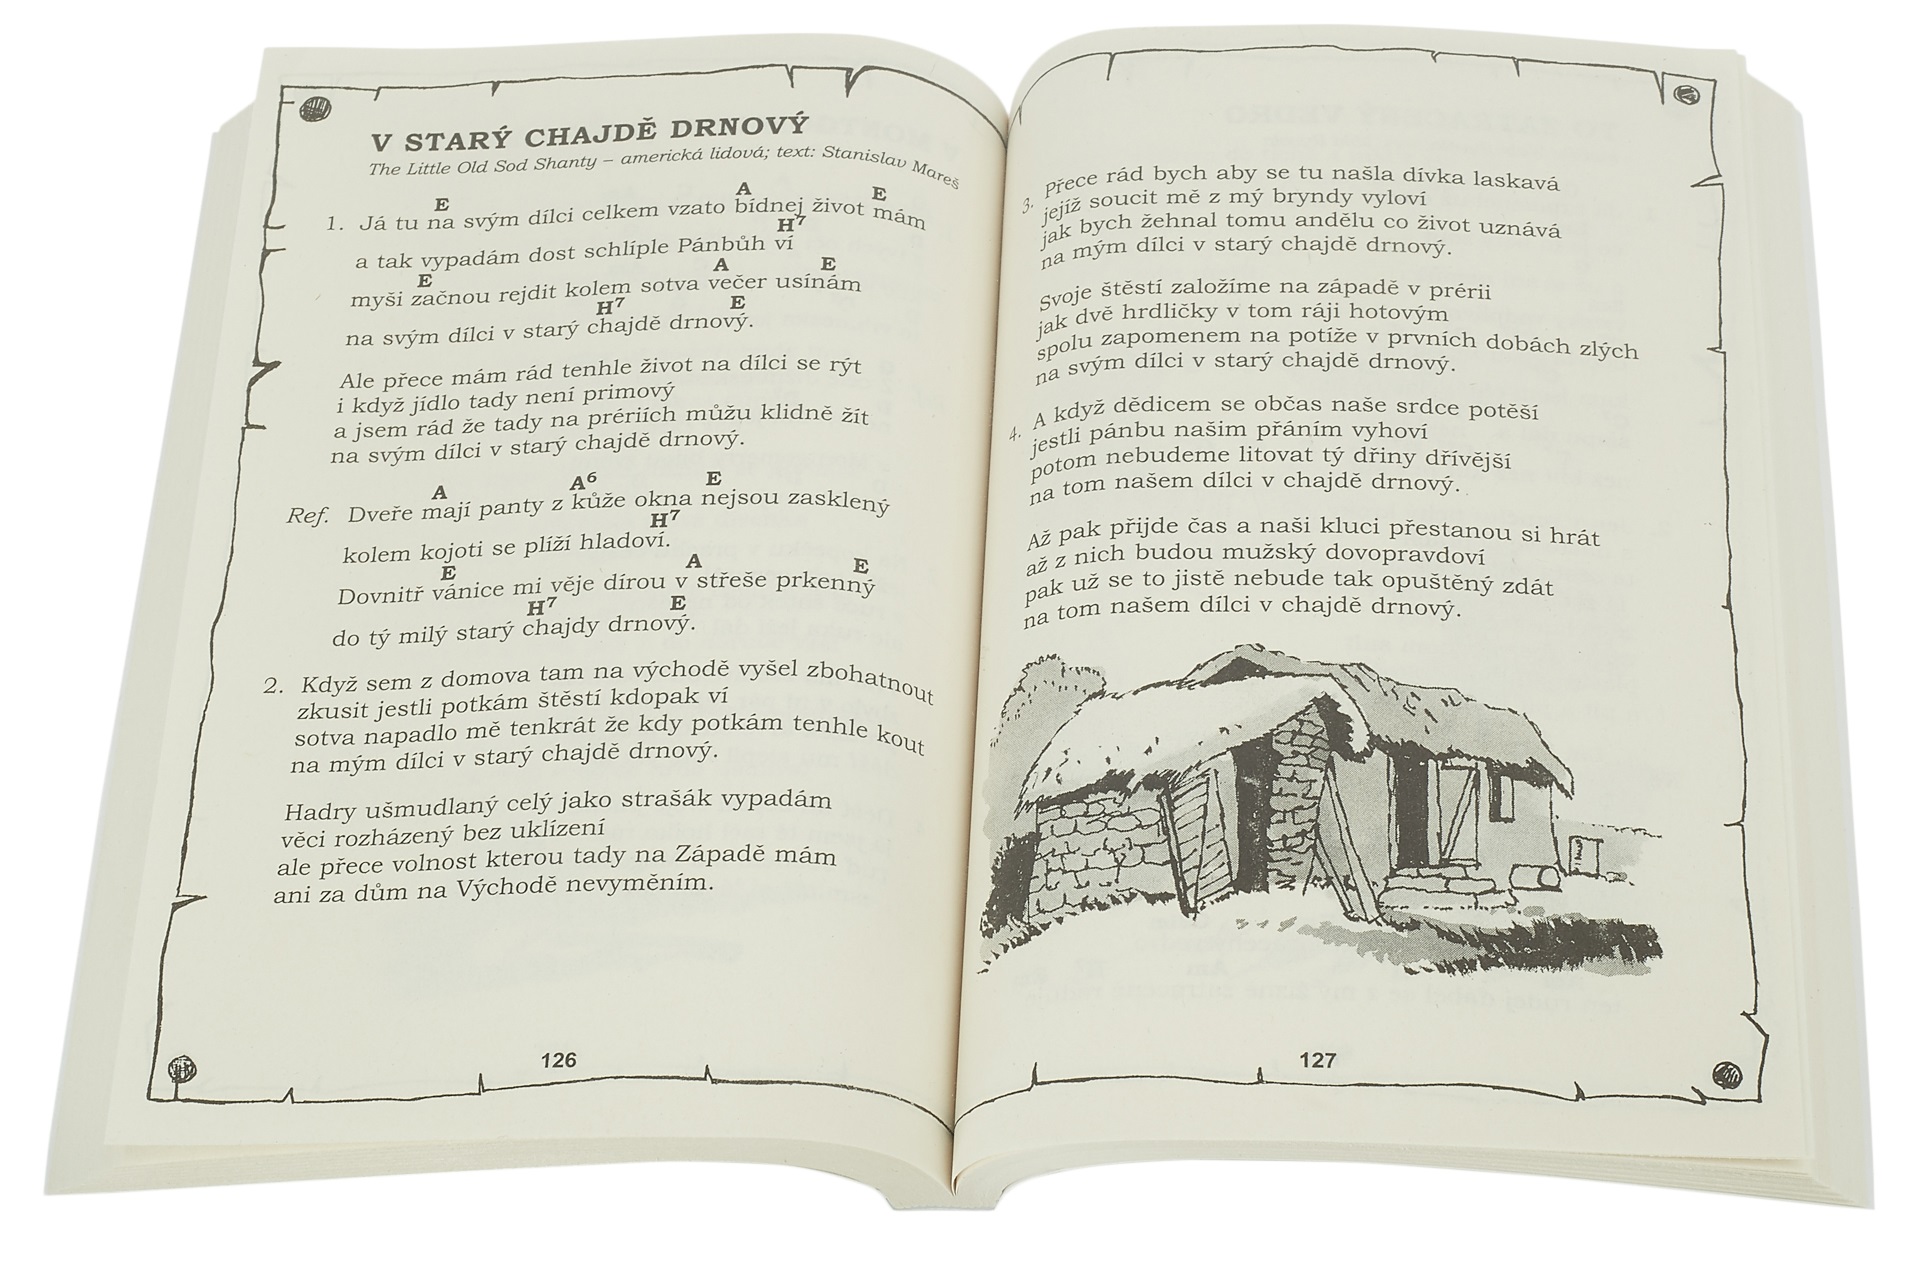 V STARÝ CHAJDĚ DRNOVÝ
The Little Old Sod Shanty – americká lidová; text: Stanislav Mareš
E A E
1. Já tu na svým dílci celkem vzato bídnej život mám
H7
a tak vypadám dost schlíple Pánbůh ví
E A E
myši začnou rejdit kolem sotva večer usínám
H7 E
na svým dílci v starý chajdě drnový.
Ale přece mám rád tenhle život na dílci se rýt
i když jídlo tady není primový
a jsem rád že tady na prériích můžu klidně žít
na svým dílci v starý chajdě drnový.
A A6 E
Ref. Dveře mají panty z kůže okna nejsou zasklený
H7
kolem kojoti se plíží hladoví.
E A E
Dovnitř vánice mi věje dírou v střeše prkenný
H7 E
do tý milý starý chajdy drnový.
2. Když sem z domova tam na východě vyšel zbohatnout
zkusit jestli potkám štěstí kdopak ví
sotva napadlo mě tenkrát že kdy potkám tenhle kout
na mým dílci v starý chajdě drnový.
Hadry ušmudlaný celý jako strašák vypadám
věci rozházený bez uklízení
ale přece volnost kterou tady na Západě mám
ani za dům na Východě nevyměním.
126
3. Přece rád bych aby se tu našla dívka laskavá
jejíž soucit mě z mý bryndy vyloví
jak bych žehnal tomu andělu co život uznává
na mým dílci v starý chajdě drnový.
Svoje štěstí založíme na západě v prérii
jak dvě hrdličky v tom ráji hotovým
spolu zapomenem na potíže v prvních dobách zlých
na svým dílci v starý chajdě drnový.
4. A když dědicem se občas naše srdce potěší
jestli pánbu našim přáním vyhoví
potom nebudeme litovat tý dřiny dřívější
na tom našem dílci v chajdě drnový.
Až pak přijde čas a naši kluci přestanou si hrát
až z nich budou mužský dovopravdoví
pak už se to jistě nebude tak opuštěný zdát
na tom našem dílci v chajdě drnový.
127